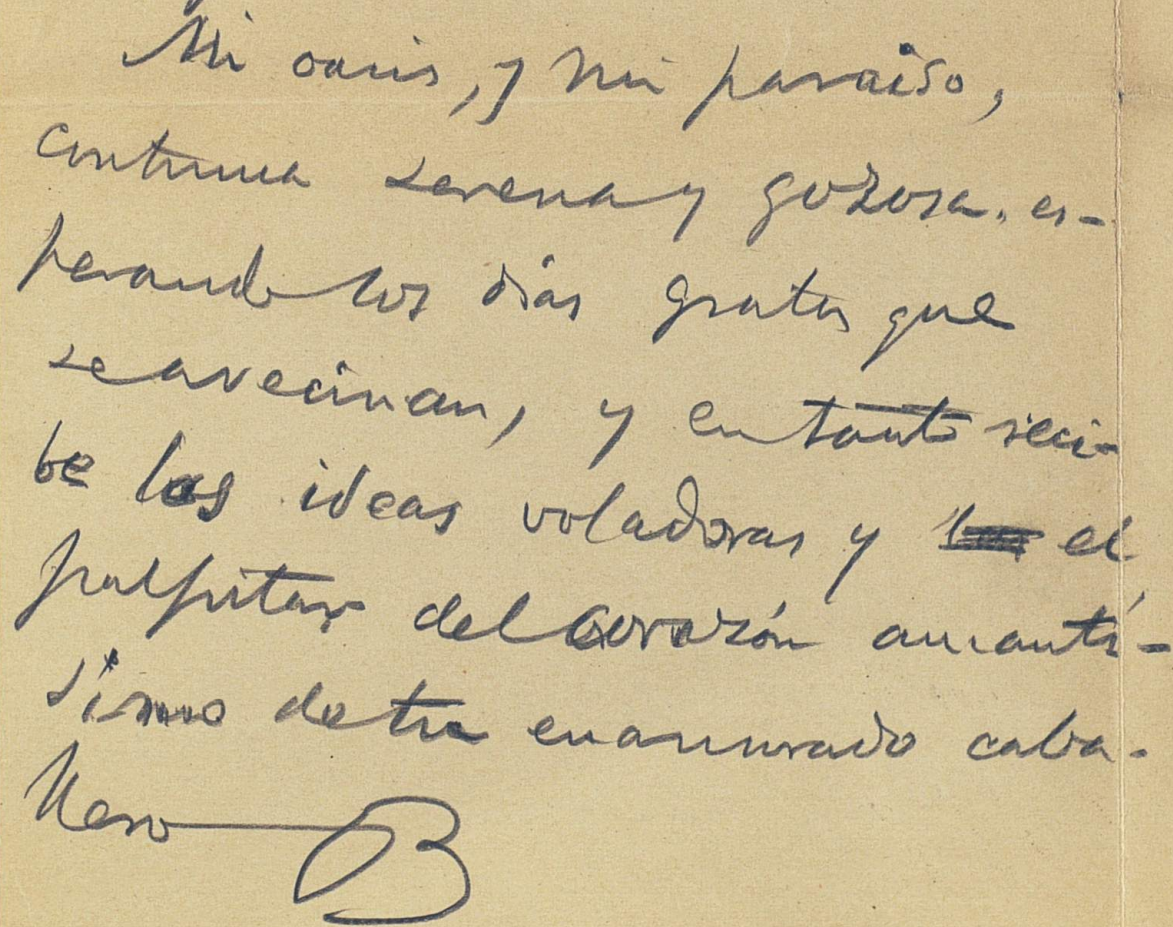 Mi oasis, y mi paraiso,
continua serena y gozosa, es-
perando los días gratos que
se avecinan, y en tanto reci-
be las ideas voladoras y el
palpitar del corazón amantí-
simo de tu enamorado caba-
llero B